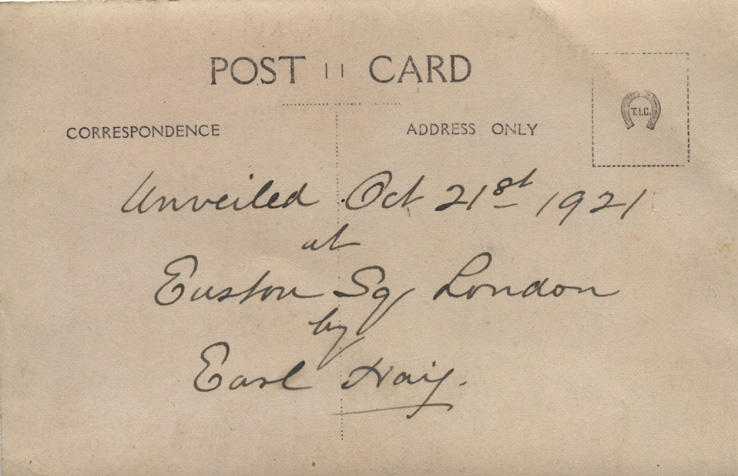 POST CARD
CORRESPONDENCE
ADDRESS ONLY
T.I.C.
Unveiled Oct 21st 1921
at
Euston Sq London
by
Earl Haig.